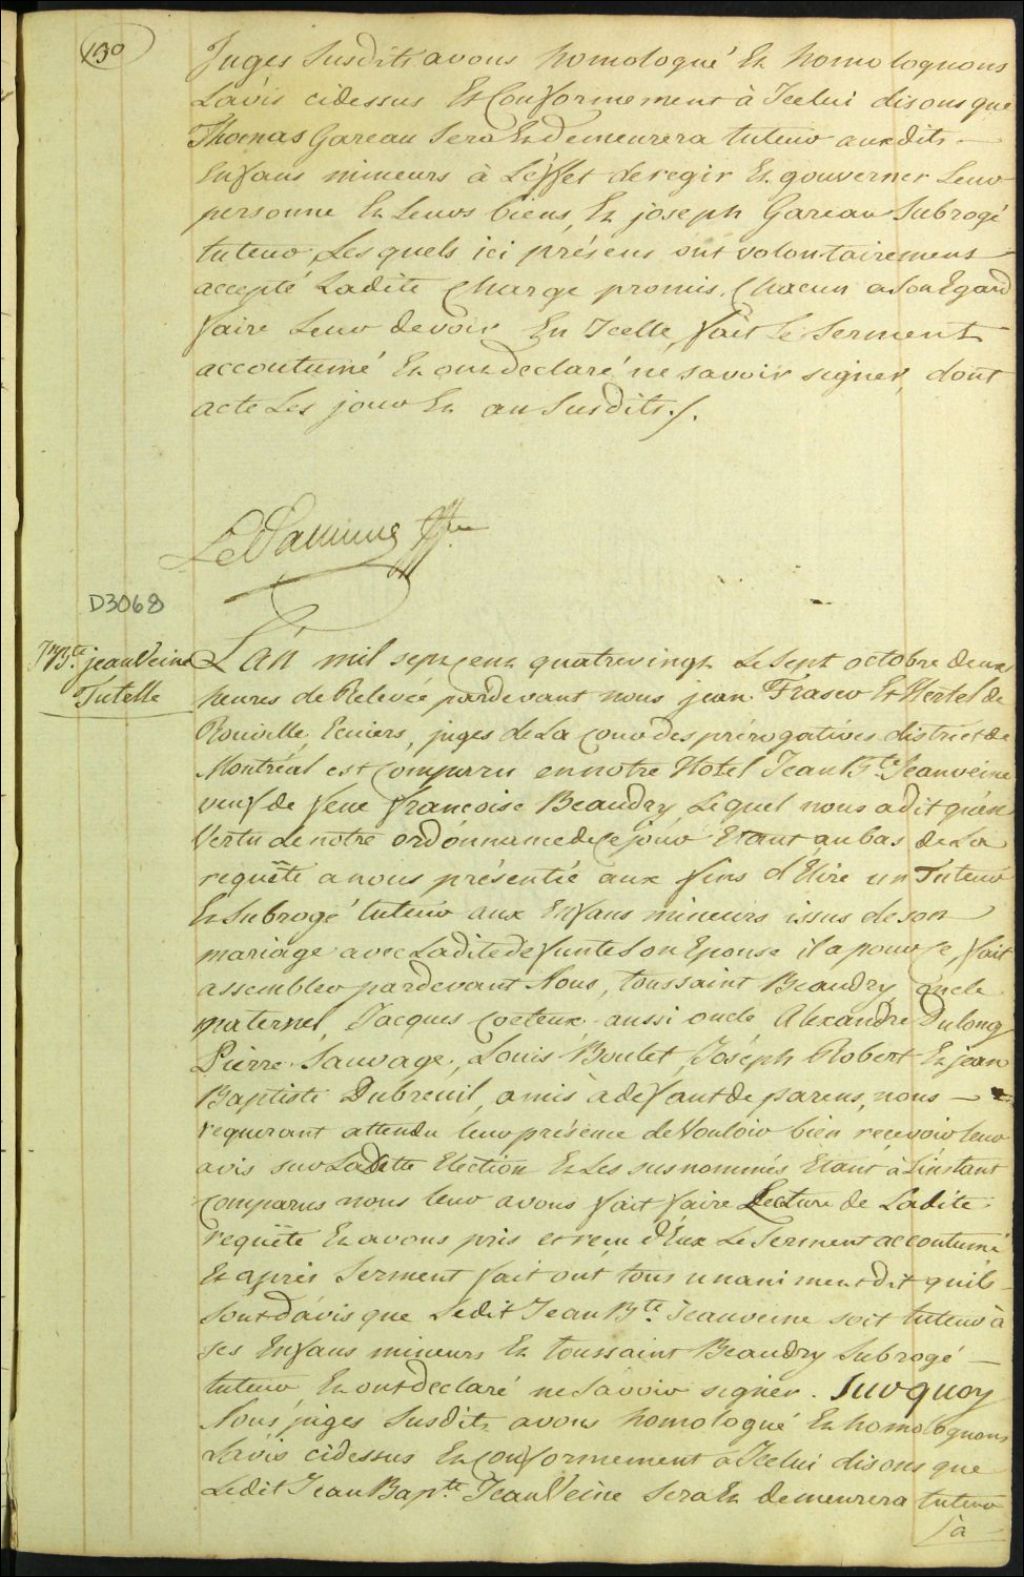 130
Juges Susdits avons homologué Et homologuons
L'avis cidessus Et Conformement à Icelui disons que
Thomas Gareau Sera Et demeurera tuteur auxdits —
Enfans mineurs à L'éffet de regir Et gouverner Leur
personne Et Leurs biens, Et joseph Gareau Subrogé
tuteur, Les quels ici présens ont volontairement
accepté Ladite Charge promis, Chacun a Son Egard
faire Leur devoir En Icelle, fait Le Serment
accoutumé Et ont declaré ne savoir signer, dont
acte Les jour Et an Susdits ./.
D3068
J. Bte. jeanVeine
Tutelle
L'an mil sept cent quatrevingt Le Sept octobre deux
heures de Relevée pardevant nous jean Fraser Et Hertel de
Rouville Ecuiers, juges de La Cour des prérogatives district de
Montréal est Comparu en notre Hotel Jean Bte. Jeanveine
veuf de feue françoise Beaudry Lequel nous a dit qu'en
Vertu de notre ordonnance de Ce jour Etant au bas de La
requête a nous présentée aux fins d'Elire un Tuteur
Et Subrogé tuteur aux Enfans mineurs issus de son
mariage avec Ladite defunte Son Epouse il a pour Ce, fait
assembler pardevant Nous, toussaint Beaudry oncle
maternel, Jacques Coiteux aussi oncle, Alexandre Dulong
Pierre Sauvage, Louis Boulet, Joséph Robert Et jean
Baptiste Dubreuil, amis à defaut de parens, nous —
requerant attendu leur présence de Vouloir bien recevoir leur
avis sur Ladite Election Et Les susnommés Etant à L'instant
Comparus nous leur avons fait faire Lecture de Ladite
requête Et avons pris et reçu d'Eux Le Serment accoutumé
Et après Serment fait ont tous unanimement dit qu'ils
Sont d'avis que Ledit Jean Bte. Jeanveine soit tuteur à
ses Enfans mineurs Et toussaint Beaudry Subrogé —
tuteur Et ont declaré ne Savoir signer. Sur quoy
Nous juges Susdits avons homologué Et homologuons
L'avis cidessus Et Conformement a Icelui disons que
Ledit Jean Bapte. JeanVeine Sera Et demeurera tuteur
/a